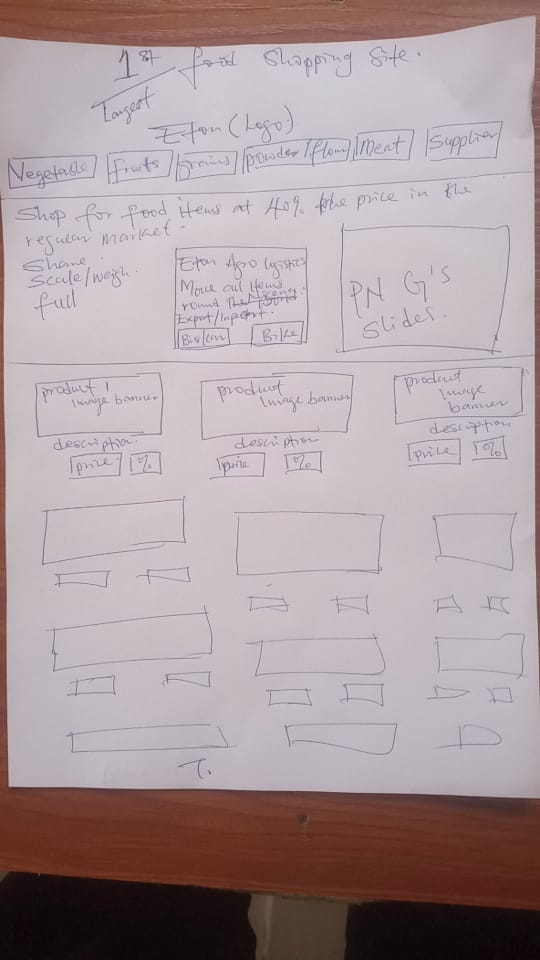 1st food Shopping Site.
Largest
Eton (Logo)
Vegetable
fruits
Grains
powder/flour
Meat
Supplier
Shop for food items at 40% the price in the
regular market.
Share
Scale/weigh.
full
Eton Agro logistics
Move all items
round
world
Export/Import.
Bike
PNG's
Slider.
product 1
image banner
description
price
%
product
Image banner
description
price
%
product
image
banner
description
price
%